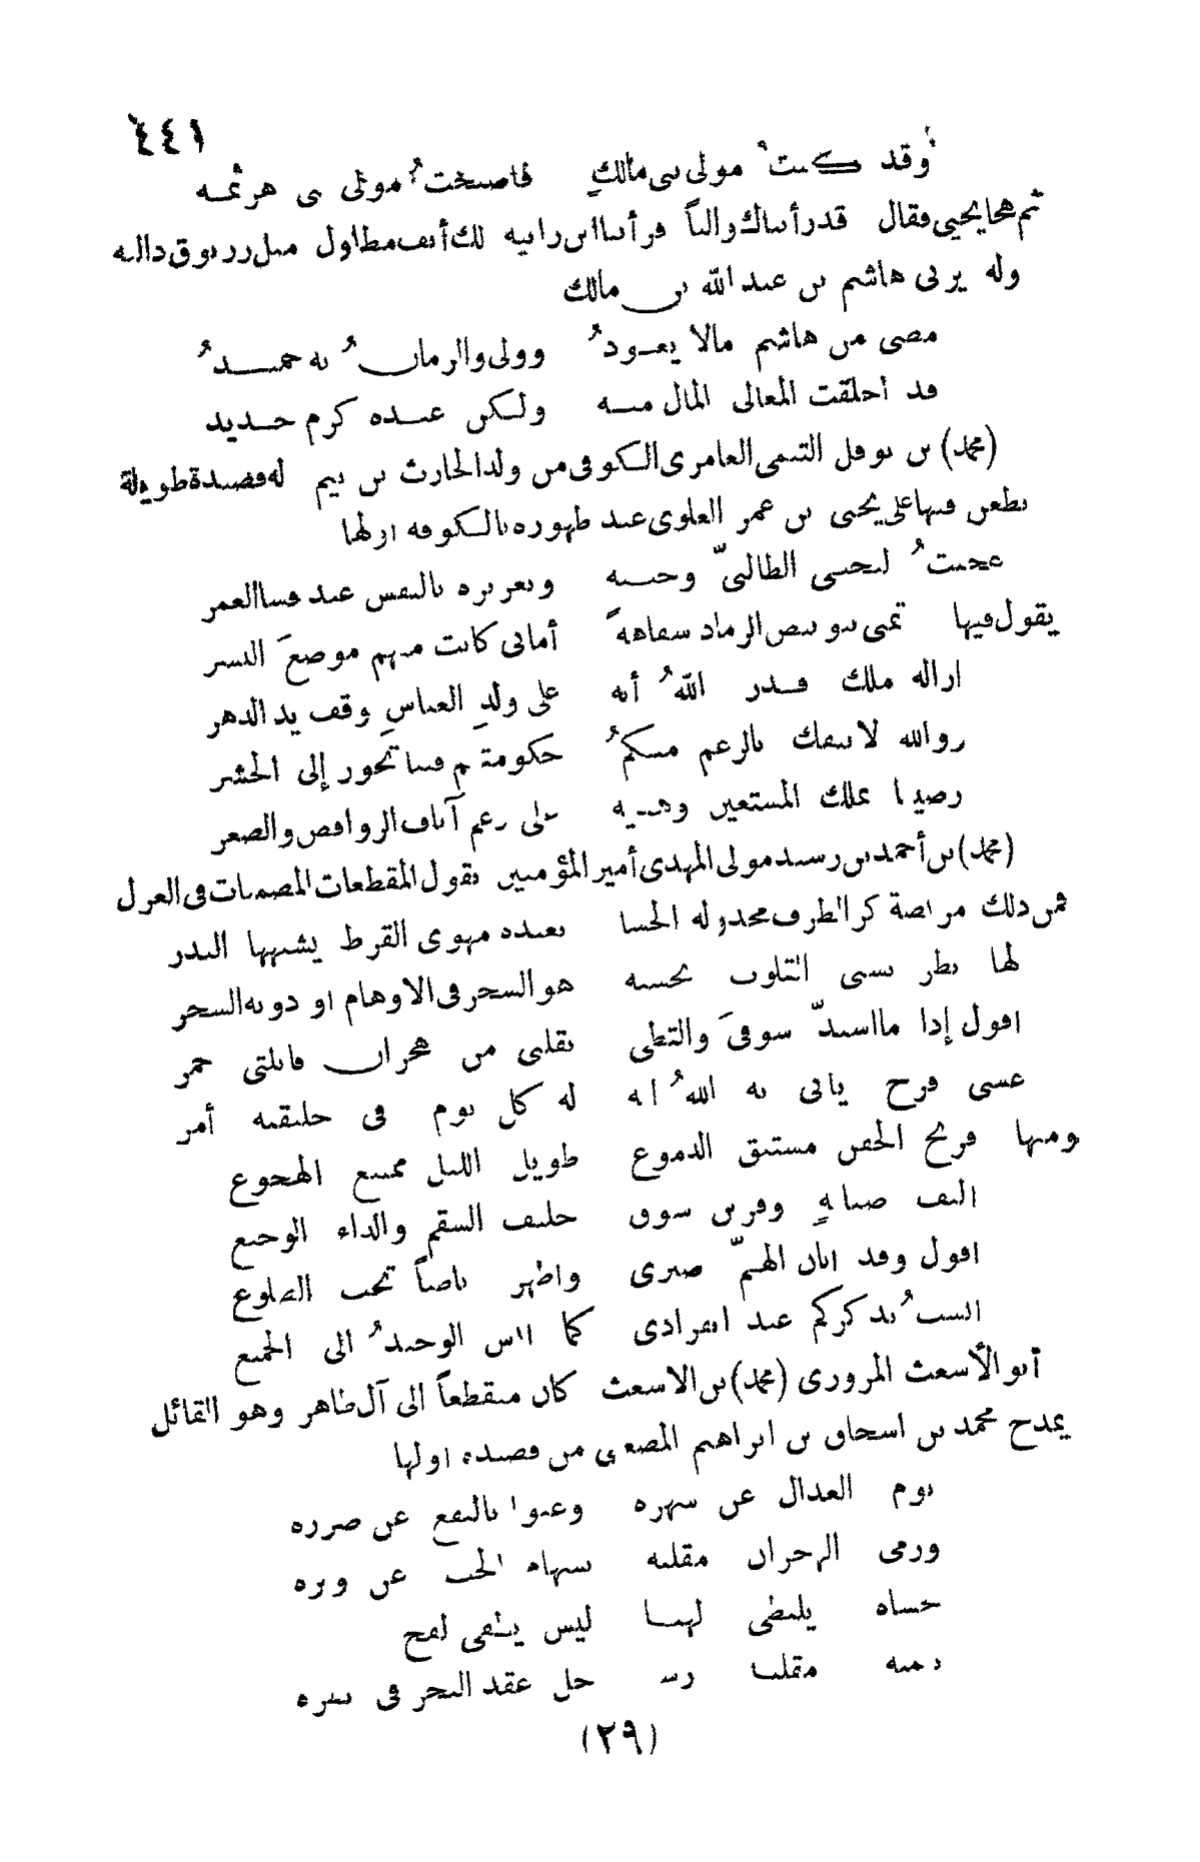 ٤٤١
وقد كنت مولى بنى مالك فاصبحت مولى بى هرثمه
ثم هجا يحيى فقال قد رأيناك والياً فرأينا ابن رانيه لك أنف مطاول مثل زرنوق داليه
وله يرثى هاشم بن عبد الله بن مالك
مضى من هاشم مالا يعود وولى والزمان به حميد
قد أخلقت المعالى المال منه ولكن عنده كرم جديد
(محمد) بن نوفل التيمى العامرى الكوفى من ولد الحارث بن تيم له قصيدة طويلة
يطعن فيها على يحيى بن عمر العلوى عند ظهوره بالكوفه اولها
عجبت ليحيى الطالبىّ وحينه وتعزيره بالنفس عند فنا العمر
يقول فيها تمنى بنو بيض الرماد سفاهةً أمانى كانت منهم موضعَ النسر
ازاله ملك قدر اللهُ أنه على ولدِ العباسِ وقف يد الدهر
ووالله لا ينفك بالرغم منكمُ حكومتهم فينا تحور إلى الحشر
رضينا بملك المستعين وهديه على رغم آناف الروافض والصغر
(محمد) بن أحمد بن رشيد مولى المهدى أمير المؤمنين يقول المقطعات المصمتات فى الغزل
فمن ذلك مراضة كر الطرف مجدوله الحشا بعيده مهوى القرط يشبهها البدر
لها نظر يسبى القلوب بحسنه هو السحر فى الاوهام او دونه السحر
اقول إذا ما اشتدّ شوقىَ والتظى بقلبى من هجران قاتلتى جمر
عسى فرج يأتى به اللهُ انه له كل يوم فى خليقته أمر
ومنها قريح الجفن مستبق الدموع طويل الليل ممنوع الهجوع
اليف صبابهٍ وقرين شوق حليف السقم والداء الوجيع
اقول وقد ابان الهمّ صبرى واظهر باصباً تحت الضلوع
انستُ بذكركم عند انفرادى كما انس الوحيدُ الى الجميع
أبو الأشعث المروزى (محمد) بن الاشعث كان منقطعاً الى آل طاهر وهو القائل
يمدح محمد بن اسحاق بن ابراهيم المصعبى من قصيده اولها
نوم العذال عن سهره وغنوا بالنفع عن ضرره
ورمى الهجران مقلته بسهاه الحب عن وتره
حشاه يلتظى لهبا ليس يطفى لفح
مقلتا حل عقد السحر فى نثره
(٢٩)